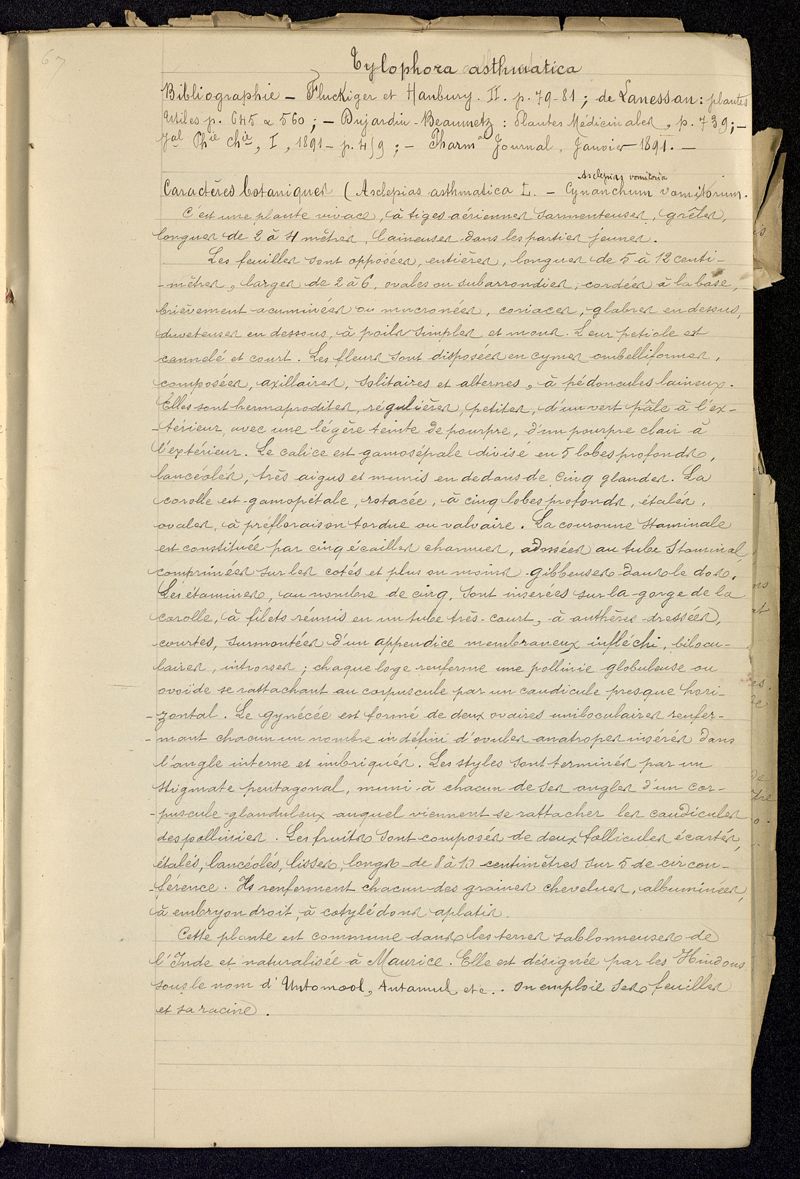 67
Tylophora asthmatica
Bibliographie — Flückiger et Hanbury. II. p. 79-81 ; de Lanessan : plantes
Utiles p. 645 & 560 ; — Dujardin-Beaumetz : Plantes Médicinales, p. 739 ; —
Jal Phie Chie, I, 1891 - p. 419 ; — Pharm Journal, Janvier 1891. —
Asclepias vomitoria
Caractères botaniques (Asclepias asthmatica L. — Cynanchum vomitorium.
C'est une plante vivace, à tiges aériennes sarmenteuses, grêles,
longues de 2 à 4 mètres, laineuses dans les parties jeunes.
Les feuilles sont opposées, entières, longues de 5 à 12 centi-
-mètres, larges de 2 à 6, ovales ou subarrondies, cordées à la base,
brièvement acuminées ou mucronées, coriaces, glabres en dessus,
duveteuses en dessous, à poils simples et mous. Leur petiole est
cannelé et court. Les fleurs sont disposées en cymes ombelliformes,
composées, axillaires, solitaires et alternes, à pédoncules laineux.
Elles sont hermaprodites, régulières, petites, d'un vert pâle à l'ex-
-térieur, avec une légère teinte de pourpre, d'un pourpre clair à
l'extérieur. Le calice est gamosépale divisé en 5 lobes profonds,
lancéolés, très aigus et munis en dedans de cinq glandes. La
corolle est gamopétale, rotacée, à cinq lobes profonds, étalés,
ovales, à préfloraison tordue ou valvaire. La couronne staminale
est constituée par cinq écailles charnues, adnées au tube staminal,
comprimées sur les cotés et plus ou moins gibbeuses dans le dos.
Les étamines, au nombre de cinq, sont inserées sur la gorge de la
corolle, à filets réunis en un tube très-court, à anthères dressées,
courtes, surmontées d'un appendice membraneux infléchi, bilocu-
laires, introrses ; chaque loge renferme une pollinie globuleuse ou
ovoïde se rattachant au corpuscule par un caudicule presque hori-
-zontal. Le gynécée est formé de deux ovaires uniloculaires renfer-
-mant chacun un nombre indéfini d'ovules anatropes insérés dans
l'angle interne et imbriqués. Les styles sont terminés par un
stigmate pentagonal, muni à chacun de ses angles d'un cor-
-puscule glanduleux auquel viennent se rattacher les caudicules
des pollinies. Les fruits sont composés de deux follicules écartés,
étalés, lancéolés, lisses, longs de 8 à 10 centimètres sur 5 de circon-
-férence. Ils renferment chacun des graines chevelues, albuminées,
à embryon droit, à cotylédons aplatis.
Cette plante est commune dans les terres sablonneuses de
l'Inde et naturalisée à Maurice. Elle est désignée par les Hindous
sous le nom d'Untomool, Antamul etc. . on emploie ses feuilles
et sa racine.